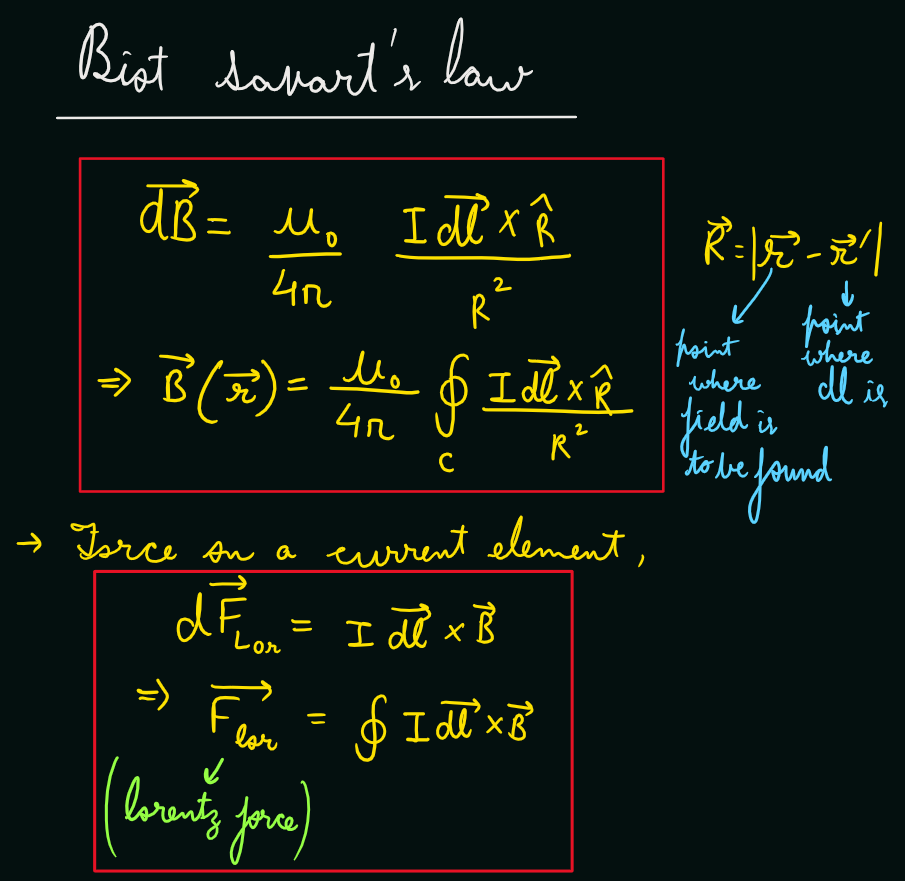 Biot Savart's law
d⃗B = μ₀/4π I d⃗l × R̂ / R²
R⃗ = |r⃗ - r⃗'|
point where field is to be found
point where dl is
⇒ B⃗(r⃗) = μ₀/4π ∮_C I d⃗l × R̂ / R²
→ Force on a current element,
dF⃗_Lor = I d⃗l × B⃗
⇒ F⃗_lor = ∮ I d⃗l × B⃗
(lorentz force)